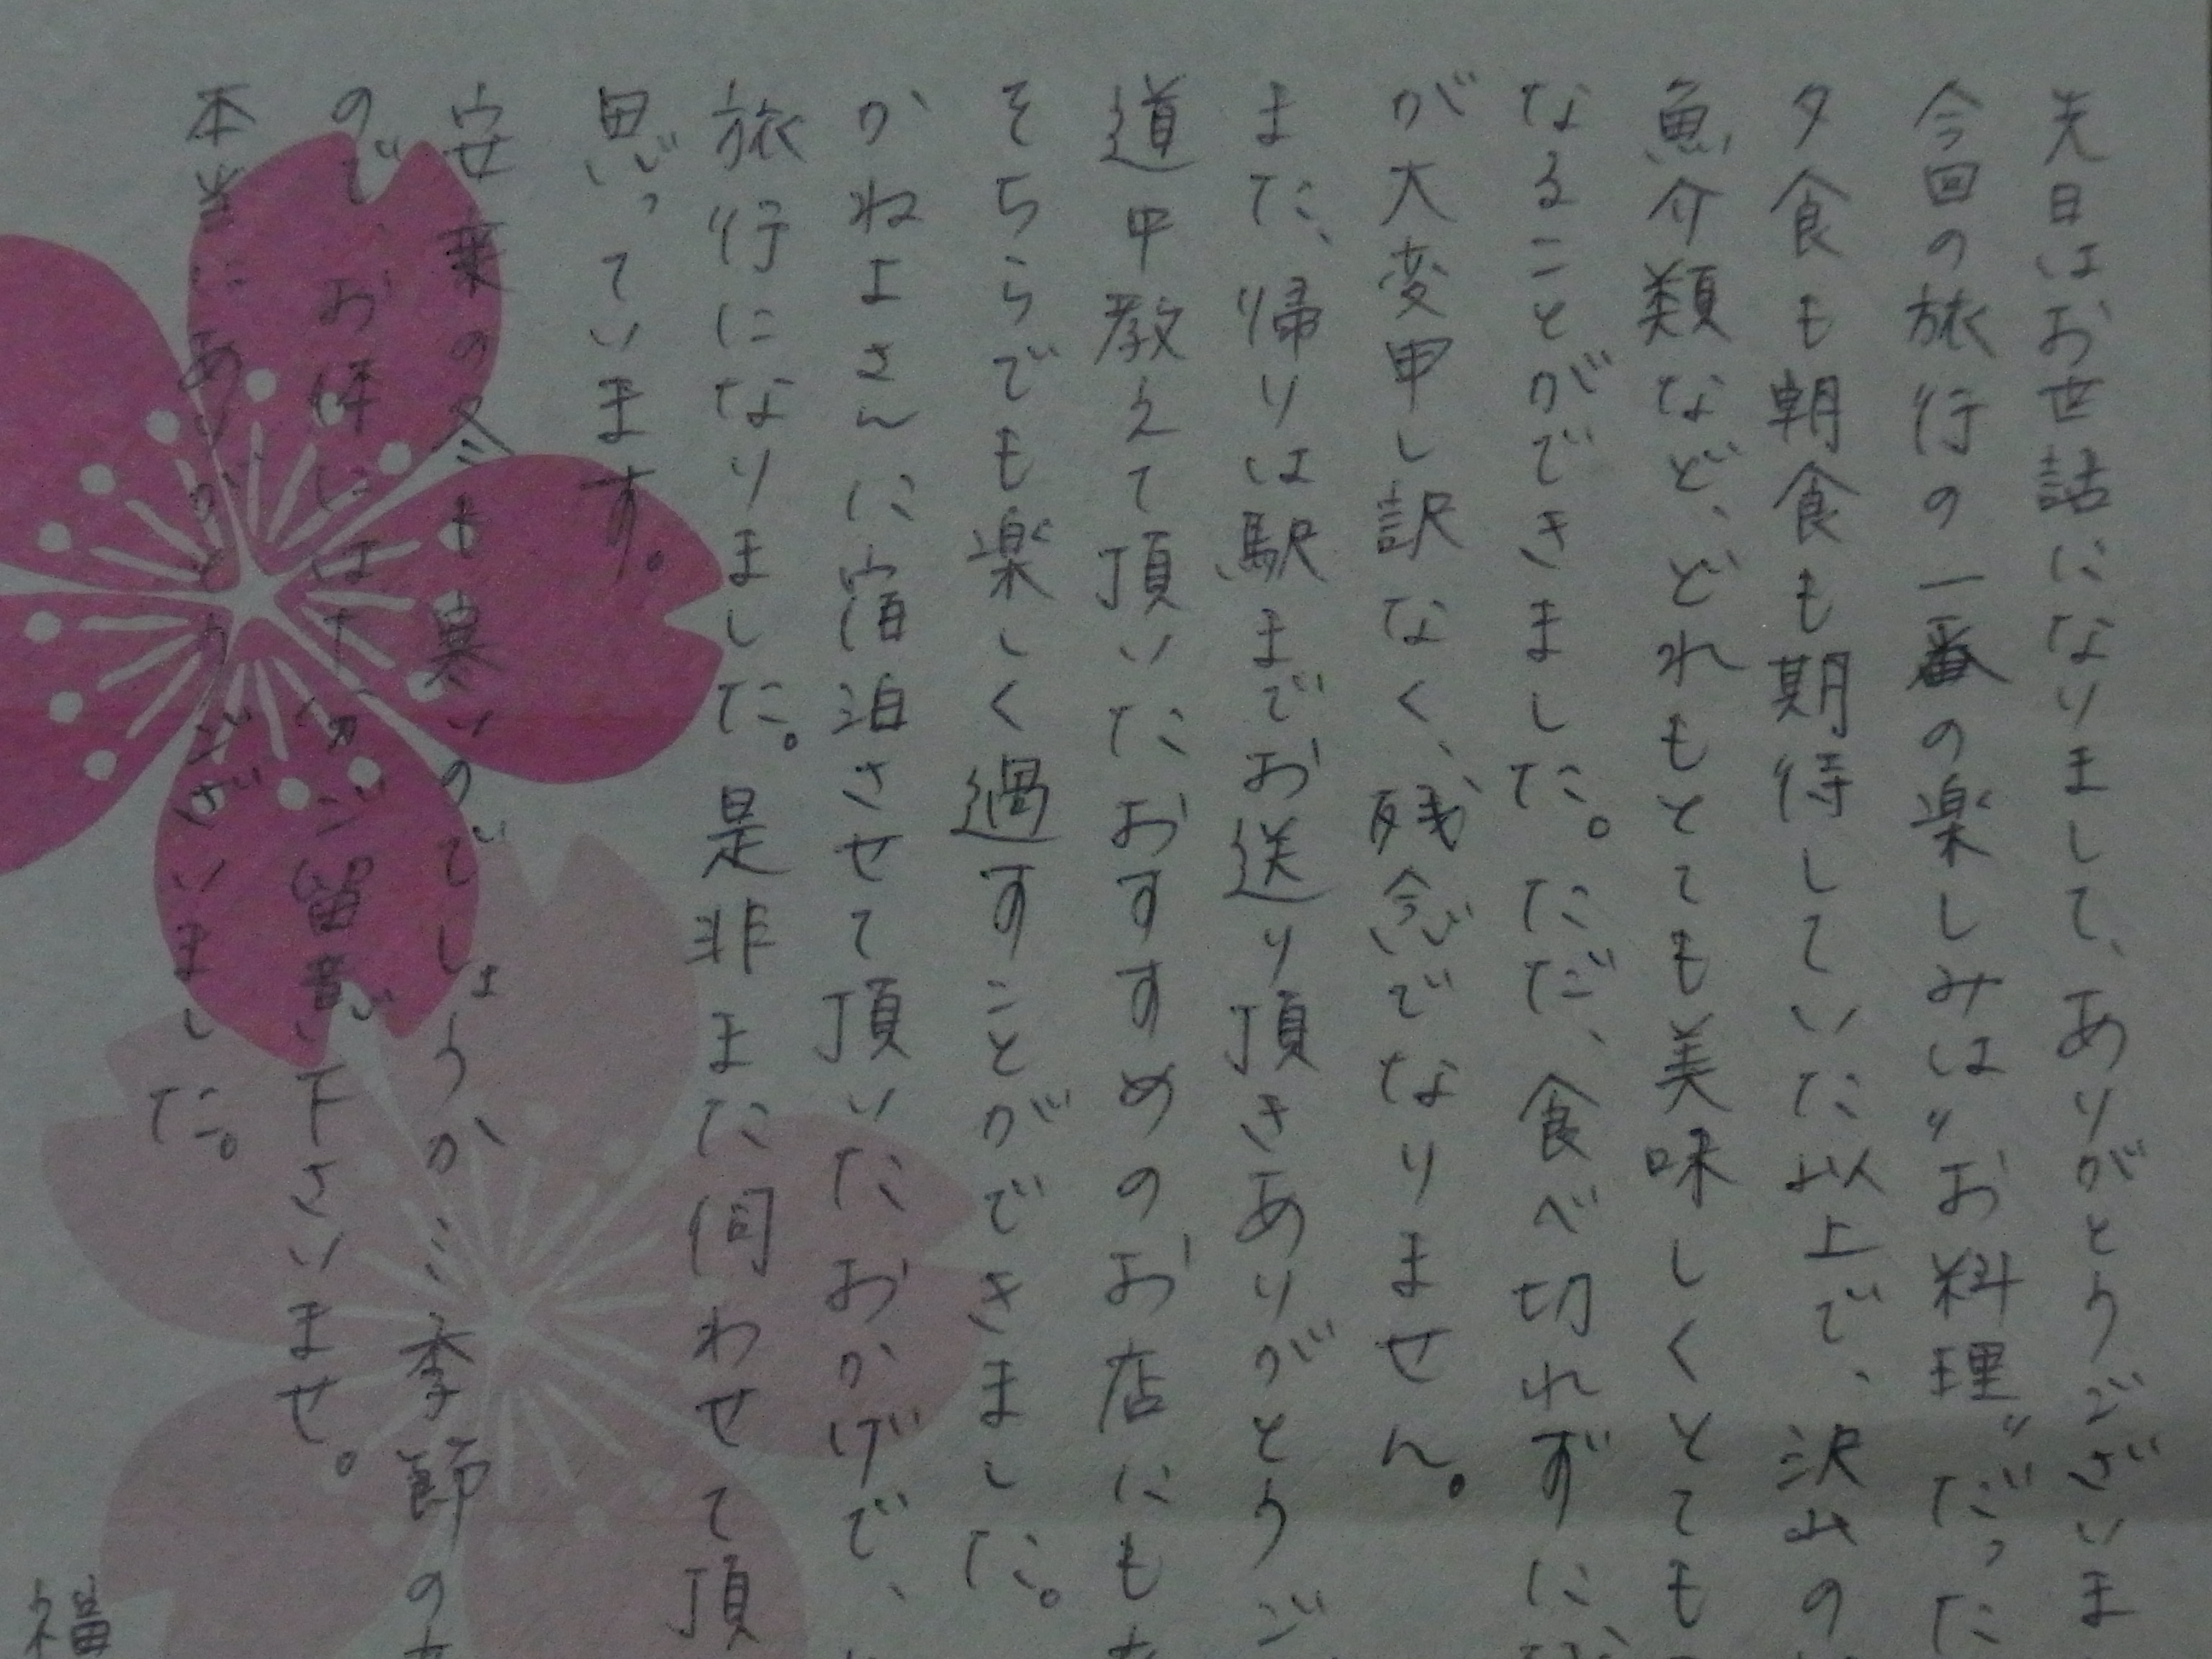 先日はお世話になりまして、ありがとうございま
今回の旅行の一番の楽しみは〝お料理〟だった
夕食も朝食も期待していた以上で、沢山の
魚介類など、どれもとても美味しくとても
なることができました。ただ、食べ切れずに
が大変申し訳なく、残念でなりません。
また、帰りは駅までお送り頂きありがとうご
道中教えて頂いたおすすめのお店にも
そちらでも楽しく過すことができました。
かねよさんに宿泊させて頂いたおかげで、
旅行になりました。是非また伺わせて頂
思っています。
安乗の冬も寒いのでしょうか…季節の
ので、お体には十分ご留意下さいませ。
本当にありがとうございました。
福